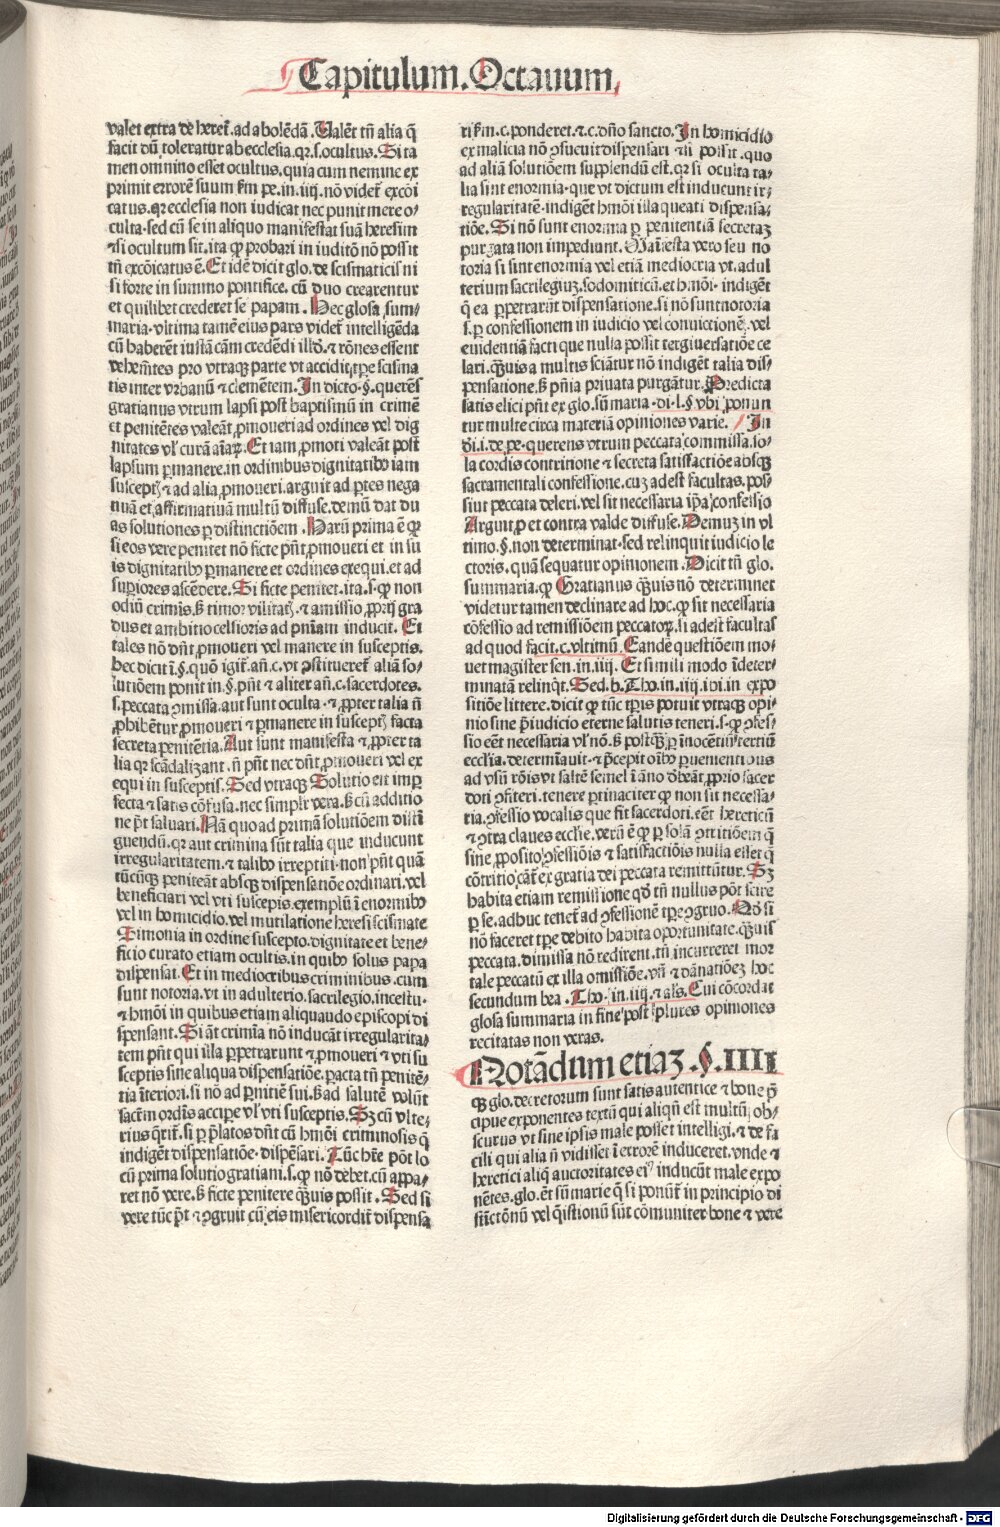 Capitulum. Octauum.
valet extra de heret̄. ad abolēdā. Ualēt tñ alia q̄
facit dū toleratur ab ecclesia. qꝛ. s. ocultus. Si ta
men omnino esset ocultus. quia cum nemine ex
primit errorē suum fm pe. in. iiij. nō videt̄ excōi
catus. qꝛ ecclesia non iudicat nec punit mere o⸗
culta. sed cū se in aliquo manifestat suā heresim
⁊ si ocultum sit. ita ꝙ probari in iuditō nō possit
tñ excōicatus ē. Et idē dicit glo. de scismaticis ni
si forte in summo pontifice. cū duo crearentur
et quilibet crederet se papam. Hec glosa sum⸗
maria. vltima tamē eius pars videt̄ intelligēda
cū haberēt iustā cām credēdi illd̄. ⁊ rōnes essent
vehemētes pro vtraqꝫ parte vt accidit tpe scisma
tis inter vrbanū ⁊ clemētem. In dicto. §. querēs
gratianus vtrum lapsi post baptismū in crimē
et penitētes valeāt ꝓmoueri ad ordines vel dig
nitates vl' curā aīaꝝ. Et iam ꝓmoti valeāt post
lapsum ꝑmanere. in ordinibus dignitatibꝰ iam
suscepti ⁊ ad alia ꝓmoueri. arguit ad ꝑtes nega
tiuā et affirmatiuam multū diffuse. demū dat du
as solutiones ꝑ distinctiōem. Harū prima ē qꝛ
si eos vere penitet nō ficte pñt ꝓmoueri et in su
is dignitatibꝰ ꝑmanere et ordines exequi. et ad
suꝑiores ascēdere. Si ficte penitet. ita. s. ꝙ non
odiū crimīs. ſꝫ timor vilitatꝭ. ⁊ amissio ꝓprij gra
dus et ambitio celsioris ad pnīam inducit. Et
tales nō dñt ꝓmoueri vel manere in susceptis.
hec dicit ī. §. quō igit̄. añ. c. vt ꝯstitueret̄ aliā so⸗
lutiōem ponit in. §. pñt ⁊ aliter añ. c. sacerdotes.
s. peccata ꝯmissa. aut sunt oculta. ⁊ ꝓpter talia ñ
ꝓhibētur ꝓmoueri ⁊ ꝑmanere in susceptꝭ facta
secreta penitētia. Aut sunt manifesta ⁊ ꝓpter ta
lia qꝛ scādalizant. ñ pñt nec dñt ꝓmoueri vel ex
equi in susceptis. Sed vtraqꝫ Solutio est imꝑ
fecta ⁊ satis cōfusa. nec simplr vera. ſꝫ cū additio
ne p̄t saluari. Nā quo ad primā solutiōem disti
guendū. qꝛ aut crimina sūt talia que inducunt
irregularitatem. ⁊ talibꝰ irreptiti. non pñt quā
tūcūqꝫ peniteāt absqꝫ dispensatiōe ordinari. vel
beneficiari vel vti suscepis. exemplū ī enormibꝰ
vel in homicidio. vel mutilatione heresi scismate
Simonia in ordine suscepto. dignitate et bene⸗
ficio curato etiam ocultis. in quibꝰ solus papa
dispensat. Et in mediocribus criminibus. cum
sunt notoria. vt in adulterio. sacrilegio. incestu.
⁊ hmōi in quibus etiam aliquaudo episcopi di
spensant. Si āt crimīa nō inducāt irregularita⸗
tem pñt qui illa ꝑpetrarunt ⁊ ꝓmoueri ⁊ vti su
sceptis sine aliqua dispensatiōe. ꝑacta tñ penitē⸗
tia īteriori. si nō ad ꝑnitiē sui. ſꝫ ad salutē volūt
sacrm̄ ordīs accipe vl' vti susceptis. Sꝫ cū vlte⸗
rius q̄rit̄. si ꝑ p̄latos dñt cū hmōi criminosis q̄
indigēt dispensatiōe. dispēsari. Tūc bn̄e pōt lo
cū prima solutio gratiani. s. ꝙ nō debet. cū appa⸗
ret nō vere. ſꝫ ficte penitere quīuis possit. Sed si
vere tūc p̄t ⁊ ꝯgruit cū eis misericordit̄ dispensa
ri fm. c. ponderet. ⁊. c. dño sancto. In homicidio
ex malicia nō ꝯsueuit dispensari ⁊ si possit. quo
ad aliā solutiōem supplendū est. qꝛ si oculta ta⸗
lia sint enormia. que vt dictum est inducunt ir⸗
regularitatē. indigēt hmōi illa queati dispensa⸗
tiōe. Si nō sunt enormia ꝑ penitentiā secretaꝫ
purgata non impediunt. Manifesta vero seu no
toria si sint enormia vel etiā mediocria vt. adul
terium sacrilegiuꝫ. sodomiticū. et hmōi. indigēt
q̄ ea ꝑpetrarūt dispensatione. si nō sunt notoria
s. ꝑ confessionem in iudicio vel conuictionē. vel
euidentiā facti que nulla possit tergiuersatiōe ce
lari. quīuis a multis sciātur nō indigēt talia dis⸗
pensatione. ſꝫ pñia priuata purgātur. Predicta
satis elici pñt ex glo. sū maria. di. l. § vbi ponun
tur multe circa materiā opiniones varie. In
di. i. de pe. querens vtrum peccata commissa. so⸗
la cordis contritione ⁊ secreta satisfactiōe absqꝫ
sacramentali confessione. cuꝫ adest facultas. pos⸗
sint peccata deleri. vel sit necessaria ip̄a confessio
Arguit ꝓ et contra valde diffuse. Demuꝫ in vl
timo. §. non determinat. sed relinquit iudicio le
ctoris. quā sequatur opinionem. Dicit tñ glo.
summaria. ꝙ Gratianus quīuis nō determinet
videtur tamen declinare ad hoc. ꝙ sit necessaria
cōfessio ad remissiōem peccatoꝝ. si adest facultas
ad quod facit. c. vltimū. Eandē questiōem mo⸗
uet magister sen. in. iiij. Et simili modo īdeter⸗
minatā relinq̄t. Sed. b. Tho. in. iiij. ibi. in expo
sitiōe littere. dicit ꝙ tūc tp̄is potuit vtraqꝫ opi⸗
nio sine p̄iudicio eterne salutis teneri. s. ꝙ ꝯfes⸗
sio eēt necessaria vl' nō. ſꝫ postqꝫ ꝑ inocētiū tertiū
ecclia. determīauit. ⁊ p̄cepit oībꝰ ꝑuenientibus
ad vsū rōis vt saltē semel ī āno debeāt ꝓprio sacer
doti ꝯfiteri. tenere ꝑtinaciter ꝙ non sit necessa⸗
ria. ꝯfessio vocalis que fit sacerdoti. eēt hereticū
⁊ ꝯtra claues ecclie. verū ē ꝙ ꝑ solā ꝯtritiōem q̄
sine ꝓposito ꝯfessiōis ⁊ satisfactiōis nulla esset q̄
cōtritio cāt̄ ex gratia dei peccata remittūtur. Sꝫ
habita etiam remissione qd̄ tñ nullus pōt scire
ꝑ se. adhuc tenet̄ ad ꝯfessionē tpe ꝯgruo. Nō si
nō faceret tpe debito habita oportunitate. quīuis
peccata. dimissa nō redirent. tñ incurreret mor
tale peccatū ex illa omissiōe. vñ ⁊ dānatiōeꝫ hoc
secundum bea. Tho. in. iiij. ⁊ als. Cui cōcordat
glosa summaria in fine post plures opiniones
recitatas non veras.
Notādum etiaꝫ. §. IIII
qꝫ glo. decretorum sunt satis autentice ⁊ bone p̄
cipue exponentes textū qui aliqn̄ est multū ob⸗
scurus vt sine ipsis male posset intelligi. ⁊ de fa
cili qui alia ñ vidisset ī errorē induceret. vnde ⁊
heretici aliq̄ auctoritates eiꝰ inducūt male expo
nētes. glo. ēt sū marie q̄ si ponūt̄ in principio di
stīctōnū vel q̄stionū sūt cōmuniter bone ⁊ vere
Digitalisierung gefördert durch die Deutsche Forschungsgemeinschaft - DFG